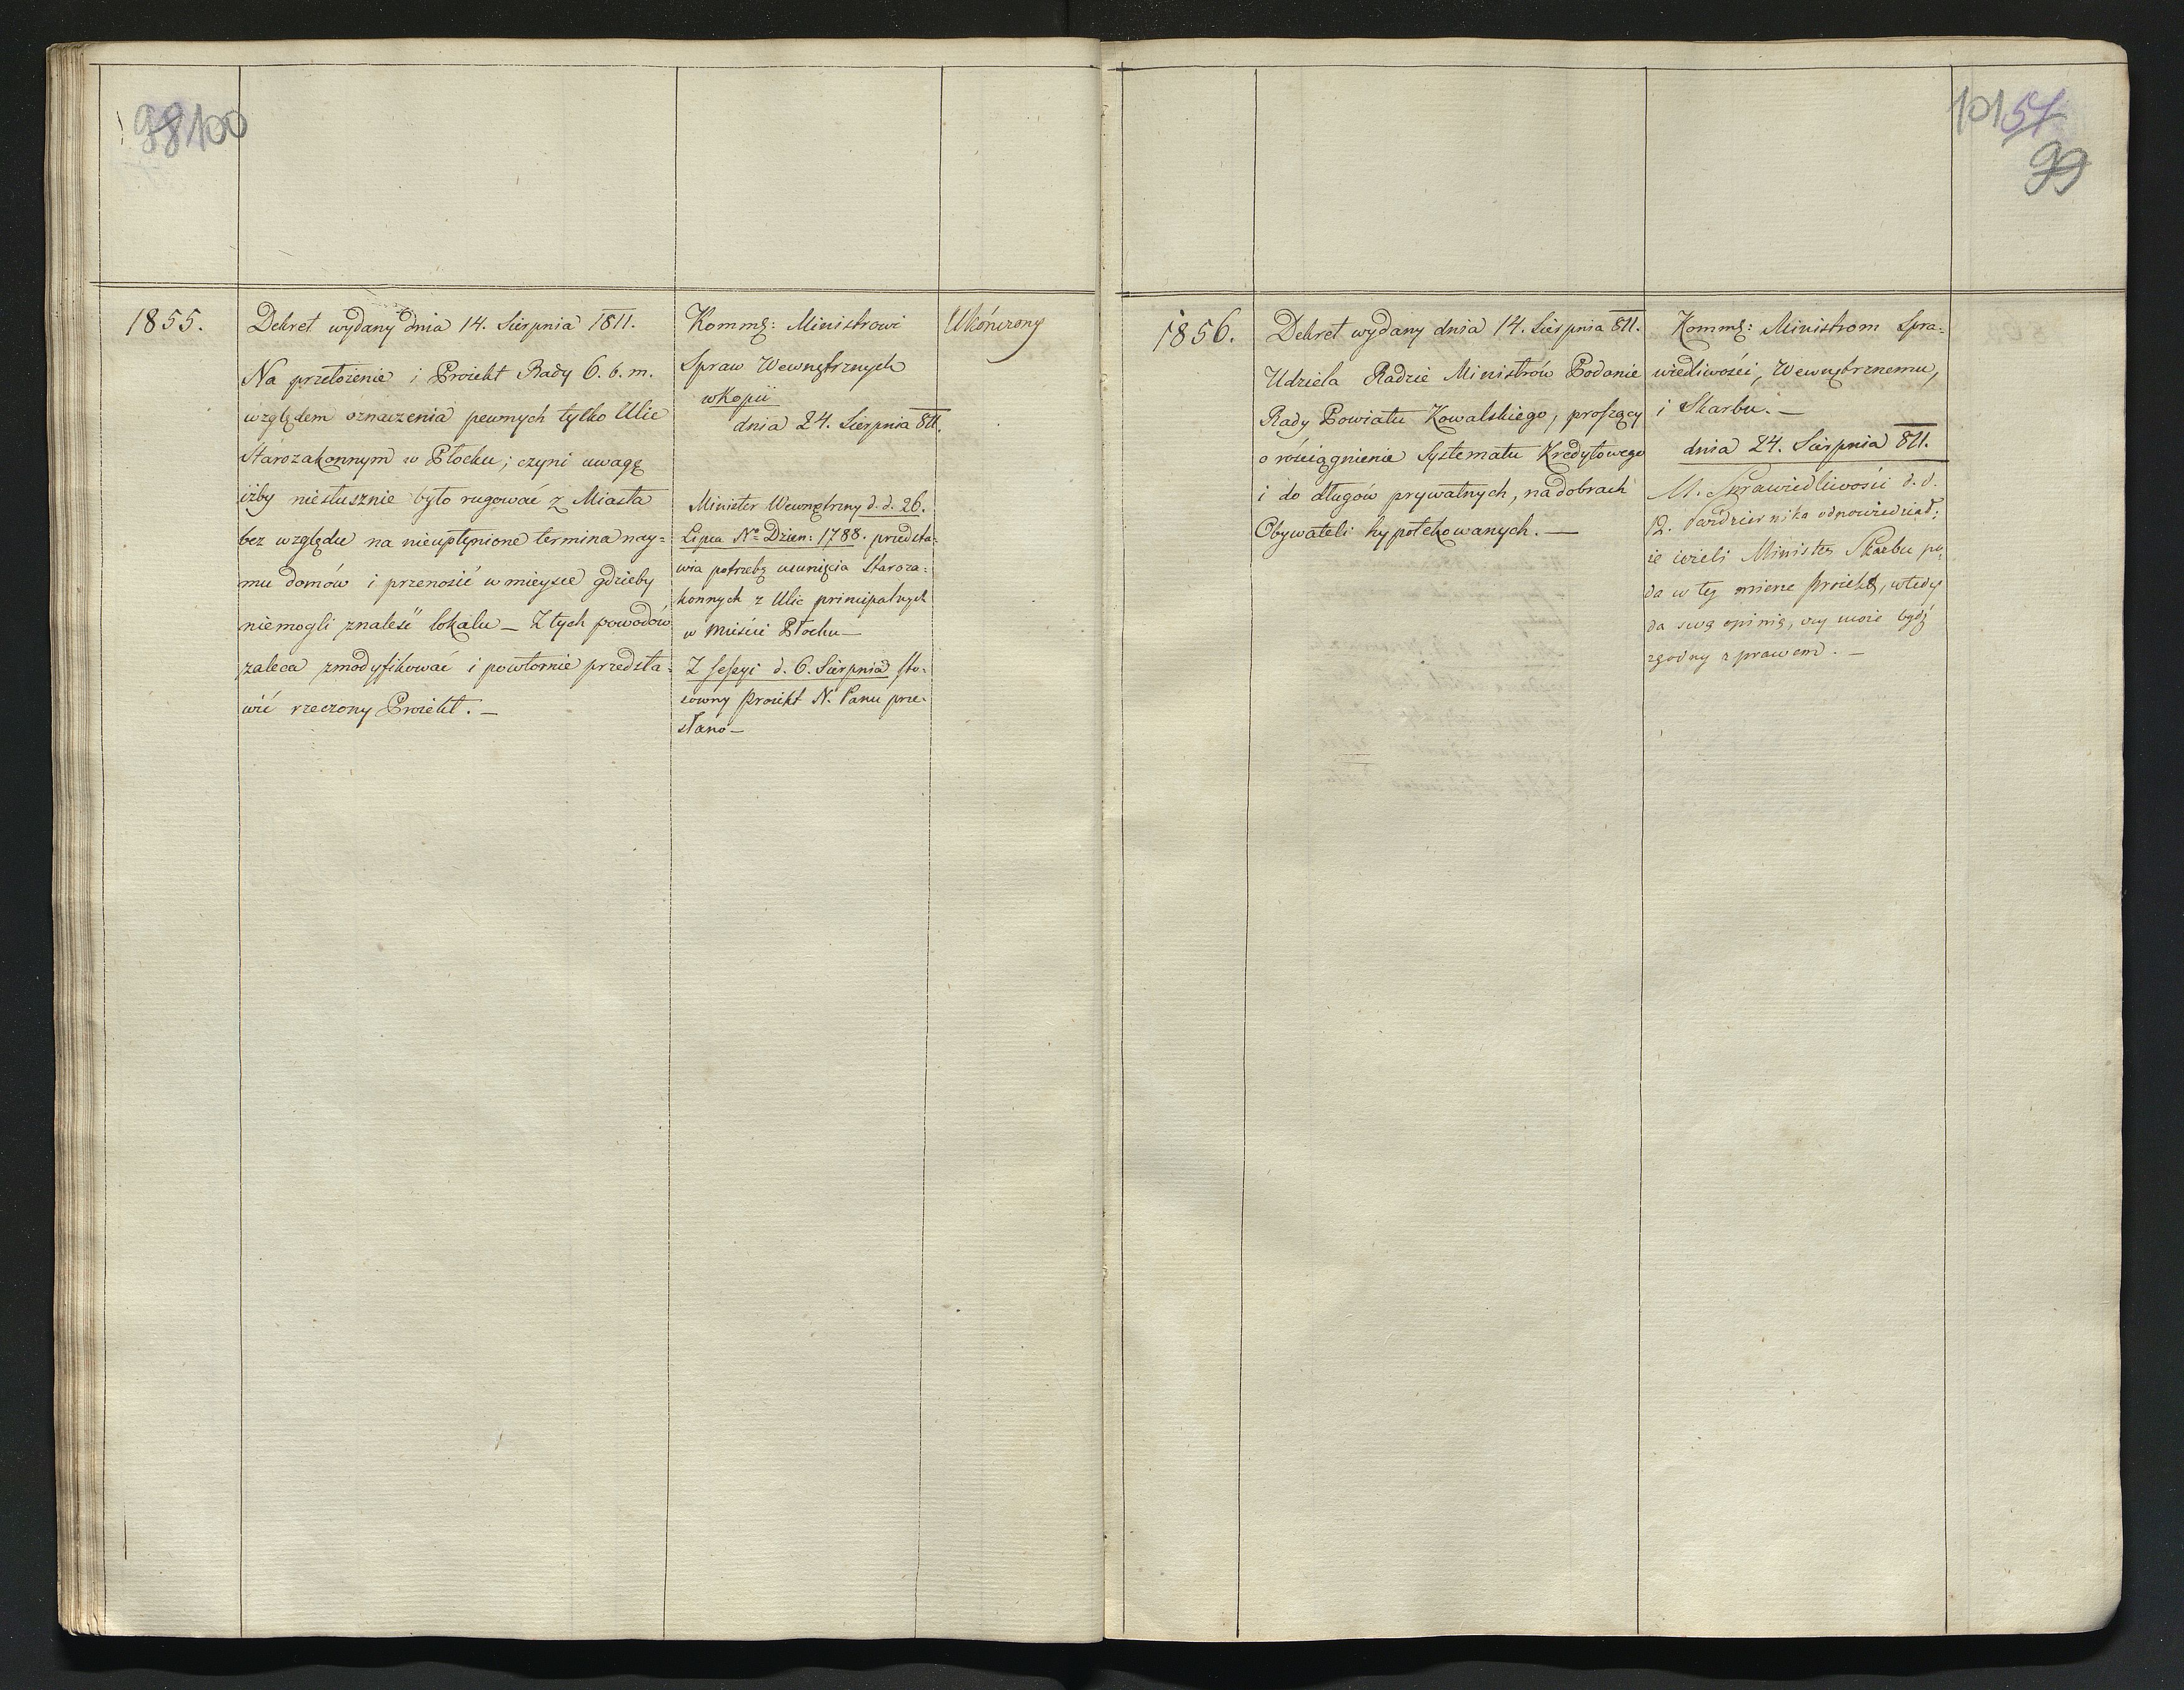 98 100
1855.
Dekret wydany dnia 14. Sierpnia 1811.
Na przełożenie i Proiekt Rady 6. b. m.
względem oznaczenia pewnych tylko Ulic
Starozakonnym w Płocku; czyni uwagę
iżby niesłusznie było rugować z Miasta
bez względu na nieupłynione termina nay=
mu domów i przenosić w mieysce gdzieby
niemogli znaleść lokalu – Z tych powodów
zaleca zmodyfikować i powtornie przedsta=
wić rzeczony Proiekt. –
Kommę: Ministrowi
Spraw Wewnętrznych
w Kopii
dnia 24. Sierpnia 811.
Minister Wewnętrzny d. d. 26.
Lipca Nro Dzien: 1788. przedsta=
wia potrzebę usunięcia Staroza=
konnych z Ulic principalnych
w mieście Płocku –
Z sessyi d. 6. Sierpnia sto=
sowny proiekt N. Panu prze=
słano –
Ukończony
101 51
99
1856.
Dekret wydany dnia 14. Sierpnia 811.
Udziela Radzie Ministrów Podanie
Rady Powiatu Kowalskiego, proszący
o rościągnienie Systematu Kredytowego
i do długów prywatnych, na dobrach
Obywateli hypotekowanych. –
Kommę: Ministrom Spra=
wiedliwości, Wewnętrznemu,
i Skarbu. –
dnia 24. Sierpnia 811.
M. Sprawiedliwości d. d.
12. Października odpowiedział;
że ieżeli Minister Skarbu po=
da w tey mierze proiekt, wtedy
da swą opinię, czy może bydź
zgodny z prawem. –